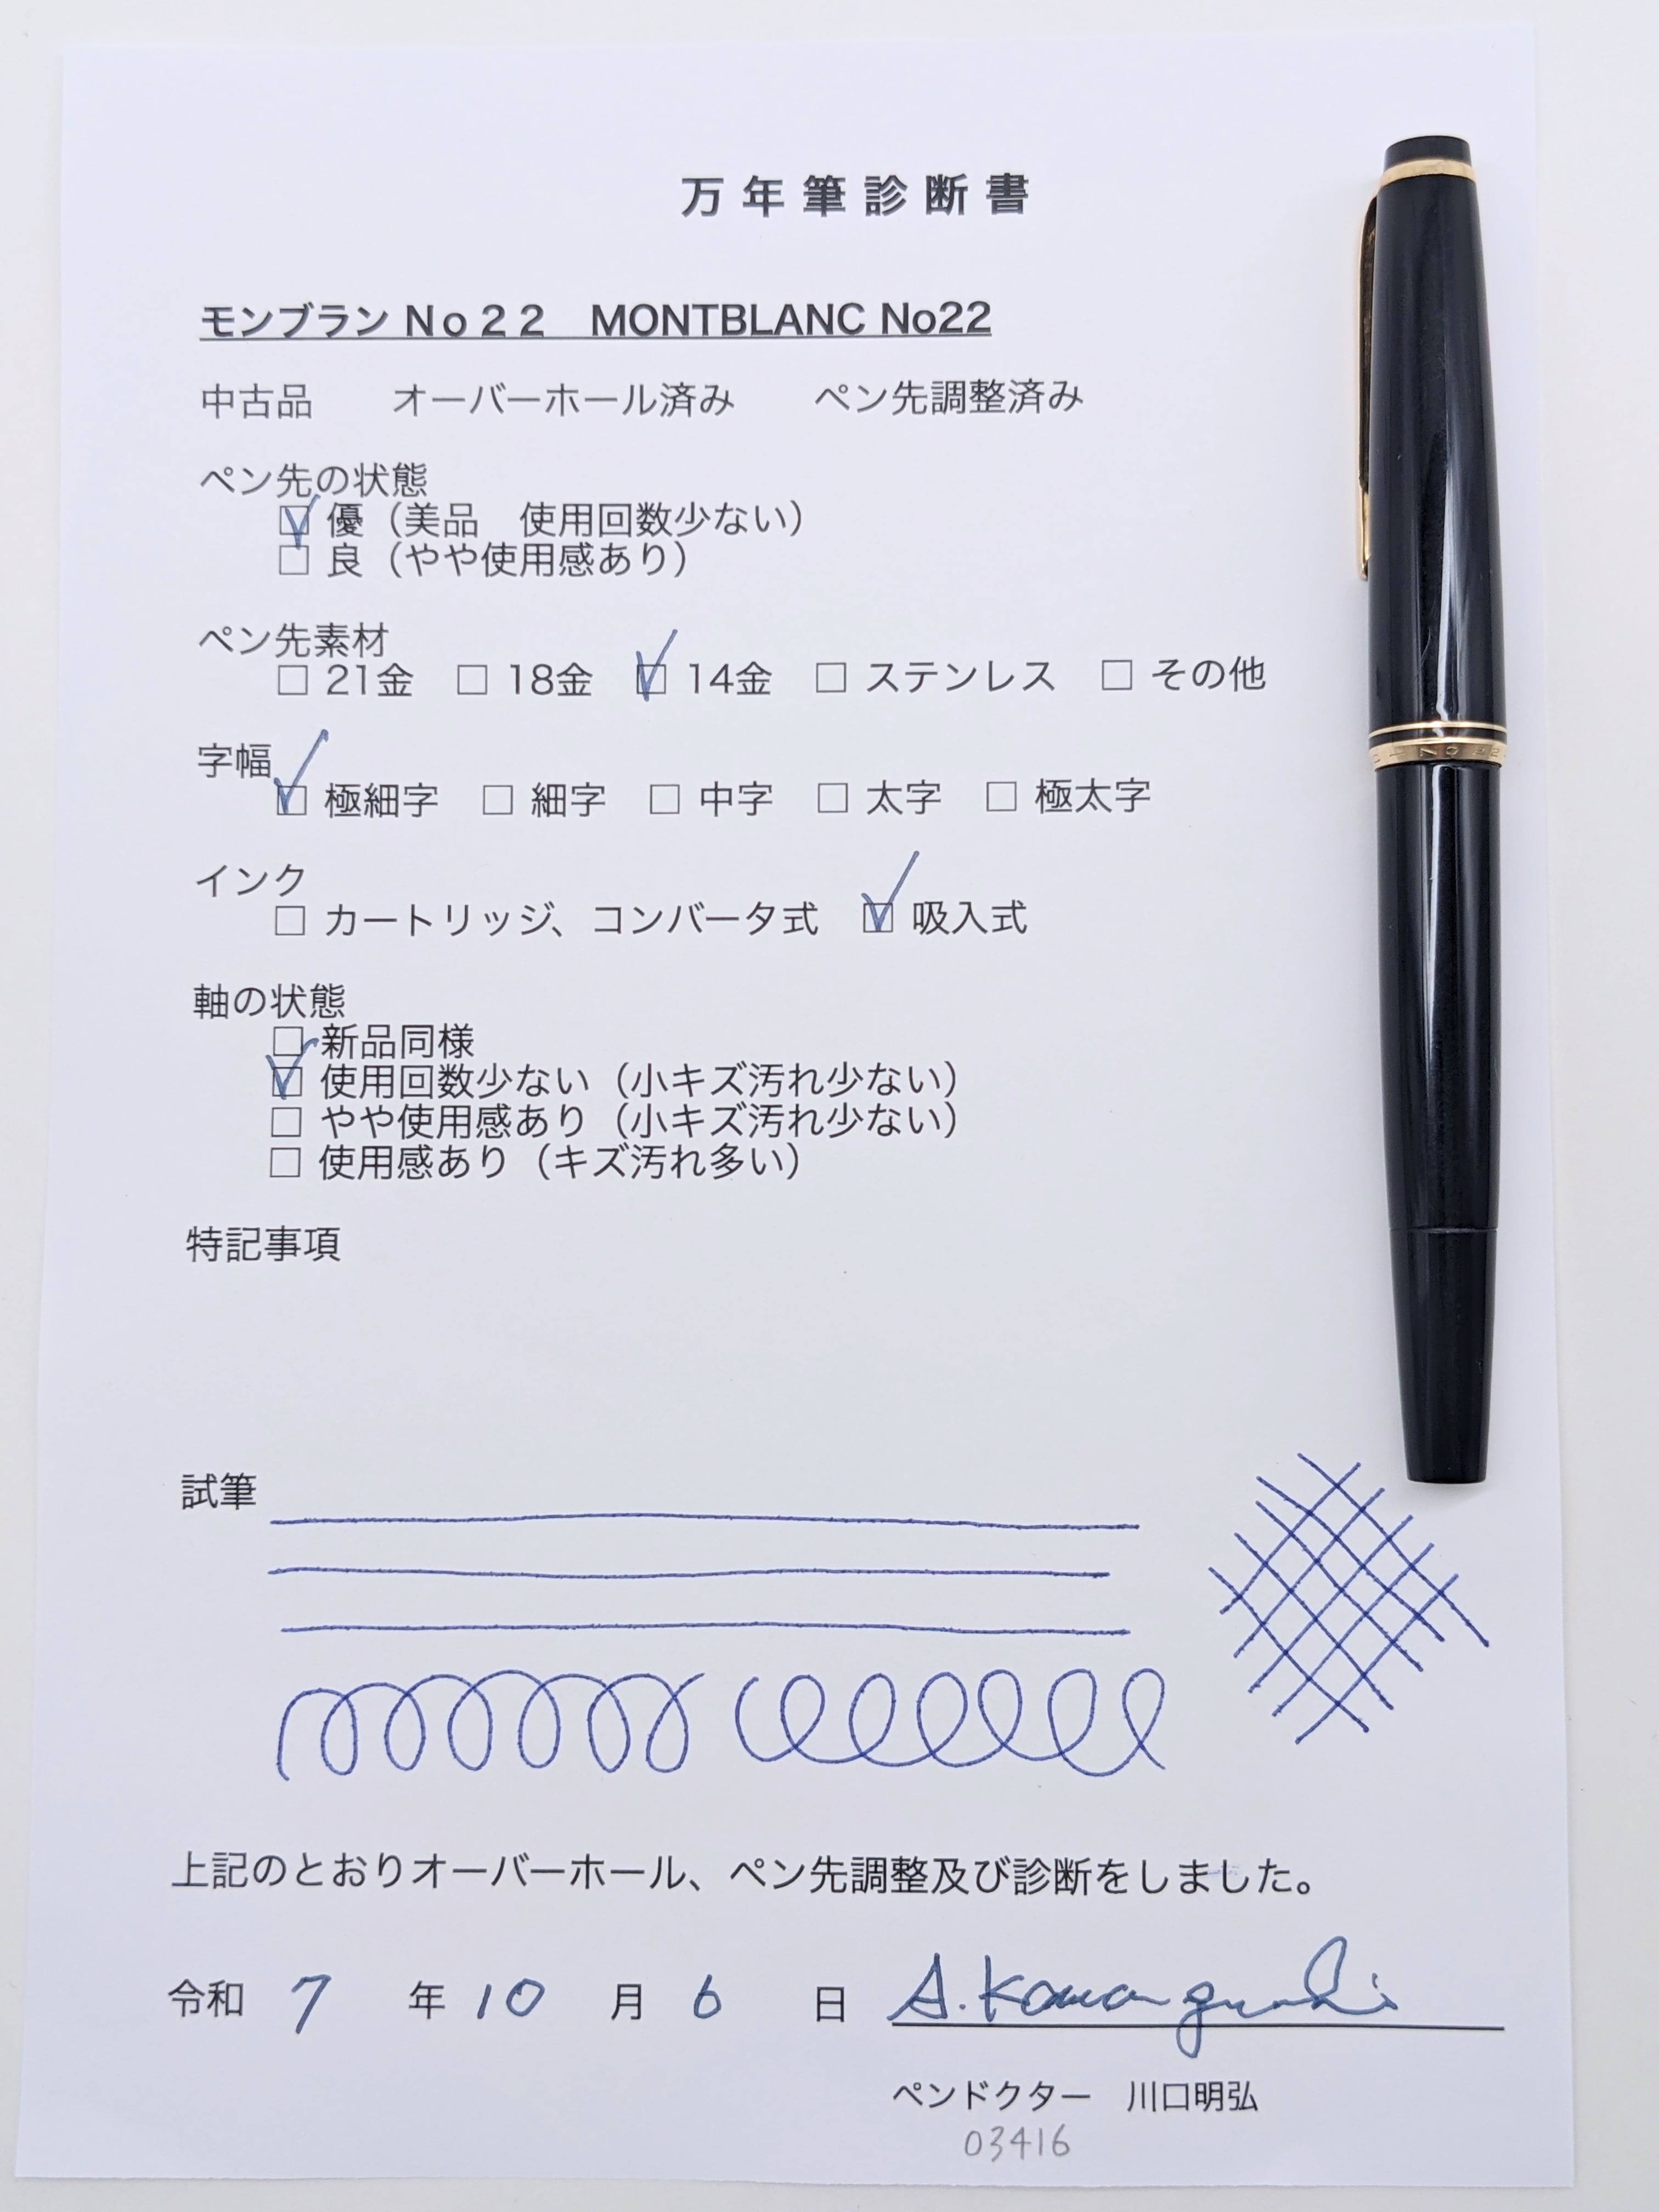 万年筆診断書
モンブラン Ｎｏ２２　MONTBLANC No22
中古品　　オーバーホール済み　　ペン先調整済み
ペン先の状態
☑ 優（美品　使用回数少ない）
□ 良（やや使用感あり）
ペン先素材
□ 21金　□ 18金　☑ 14金　□ ステンレス　□ その他
字幅
☑ 極細字　□ 細字　□ 中字　□ 太字　□ 極太字
インク
□ カートリッジ、コンバータ式　☑ 吸入式
軸の状態
□ 新品同様
☑ 使用回数少ない（小キズ汚れ少ない）
□ やや使用感あり（小キズ汚れ少ない）
□ 使用感あり（キズ汚れ多い）
特記事項
試筆
上記のとおりオーバーホール、ペン先調整及び診断をしました。
令和 7 年 10 月 6 日 A. Kawaguchi
ペンドクター　川口明弘
03416